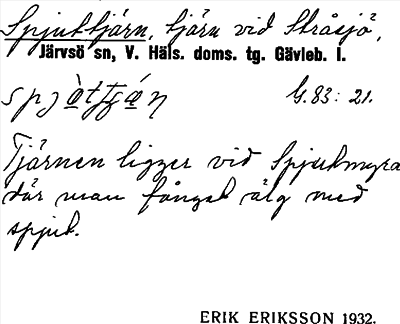 Spjuttjärn, tjärn vid Stråsjö,
Järvsö sn, V. Häls. doms. tg. Gävleb. l.
G. 83: 21.
Tjärnen ligger vid Spjutmyra
där man fångat älg med
spjut.
ERIK ERIKSSON 1932.